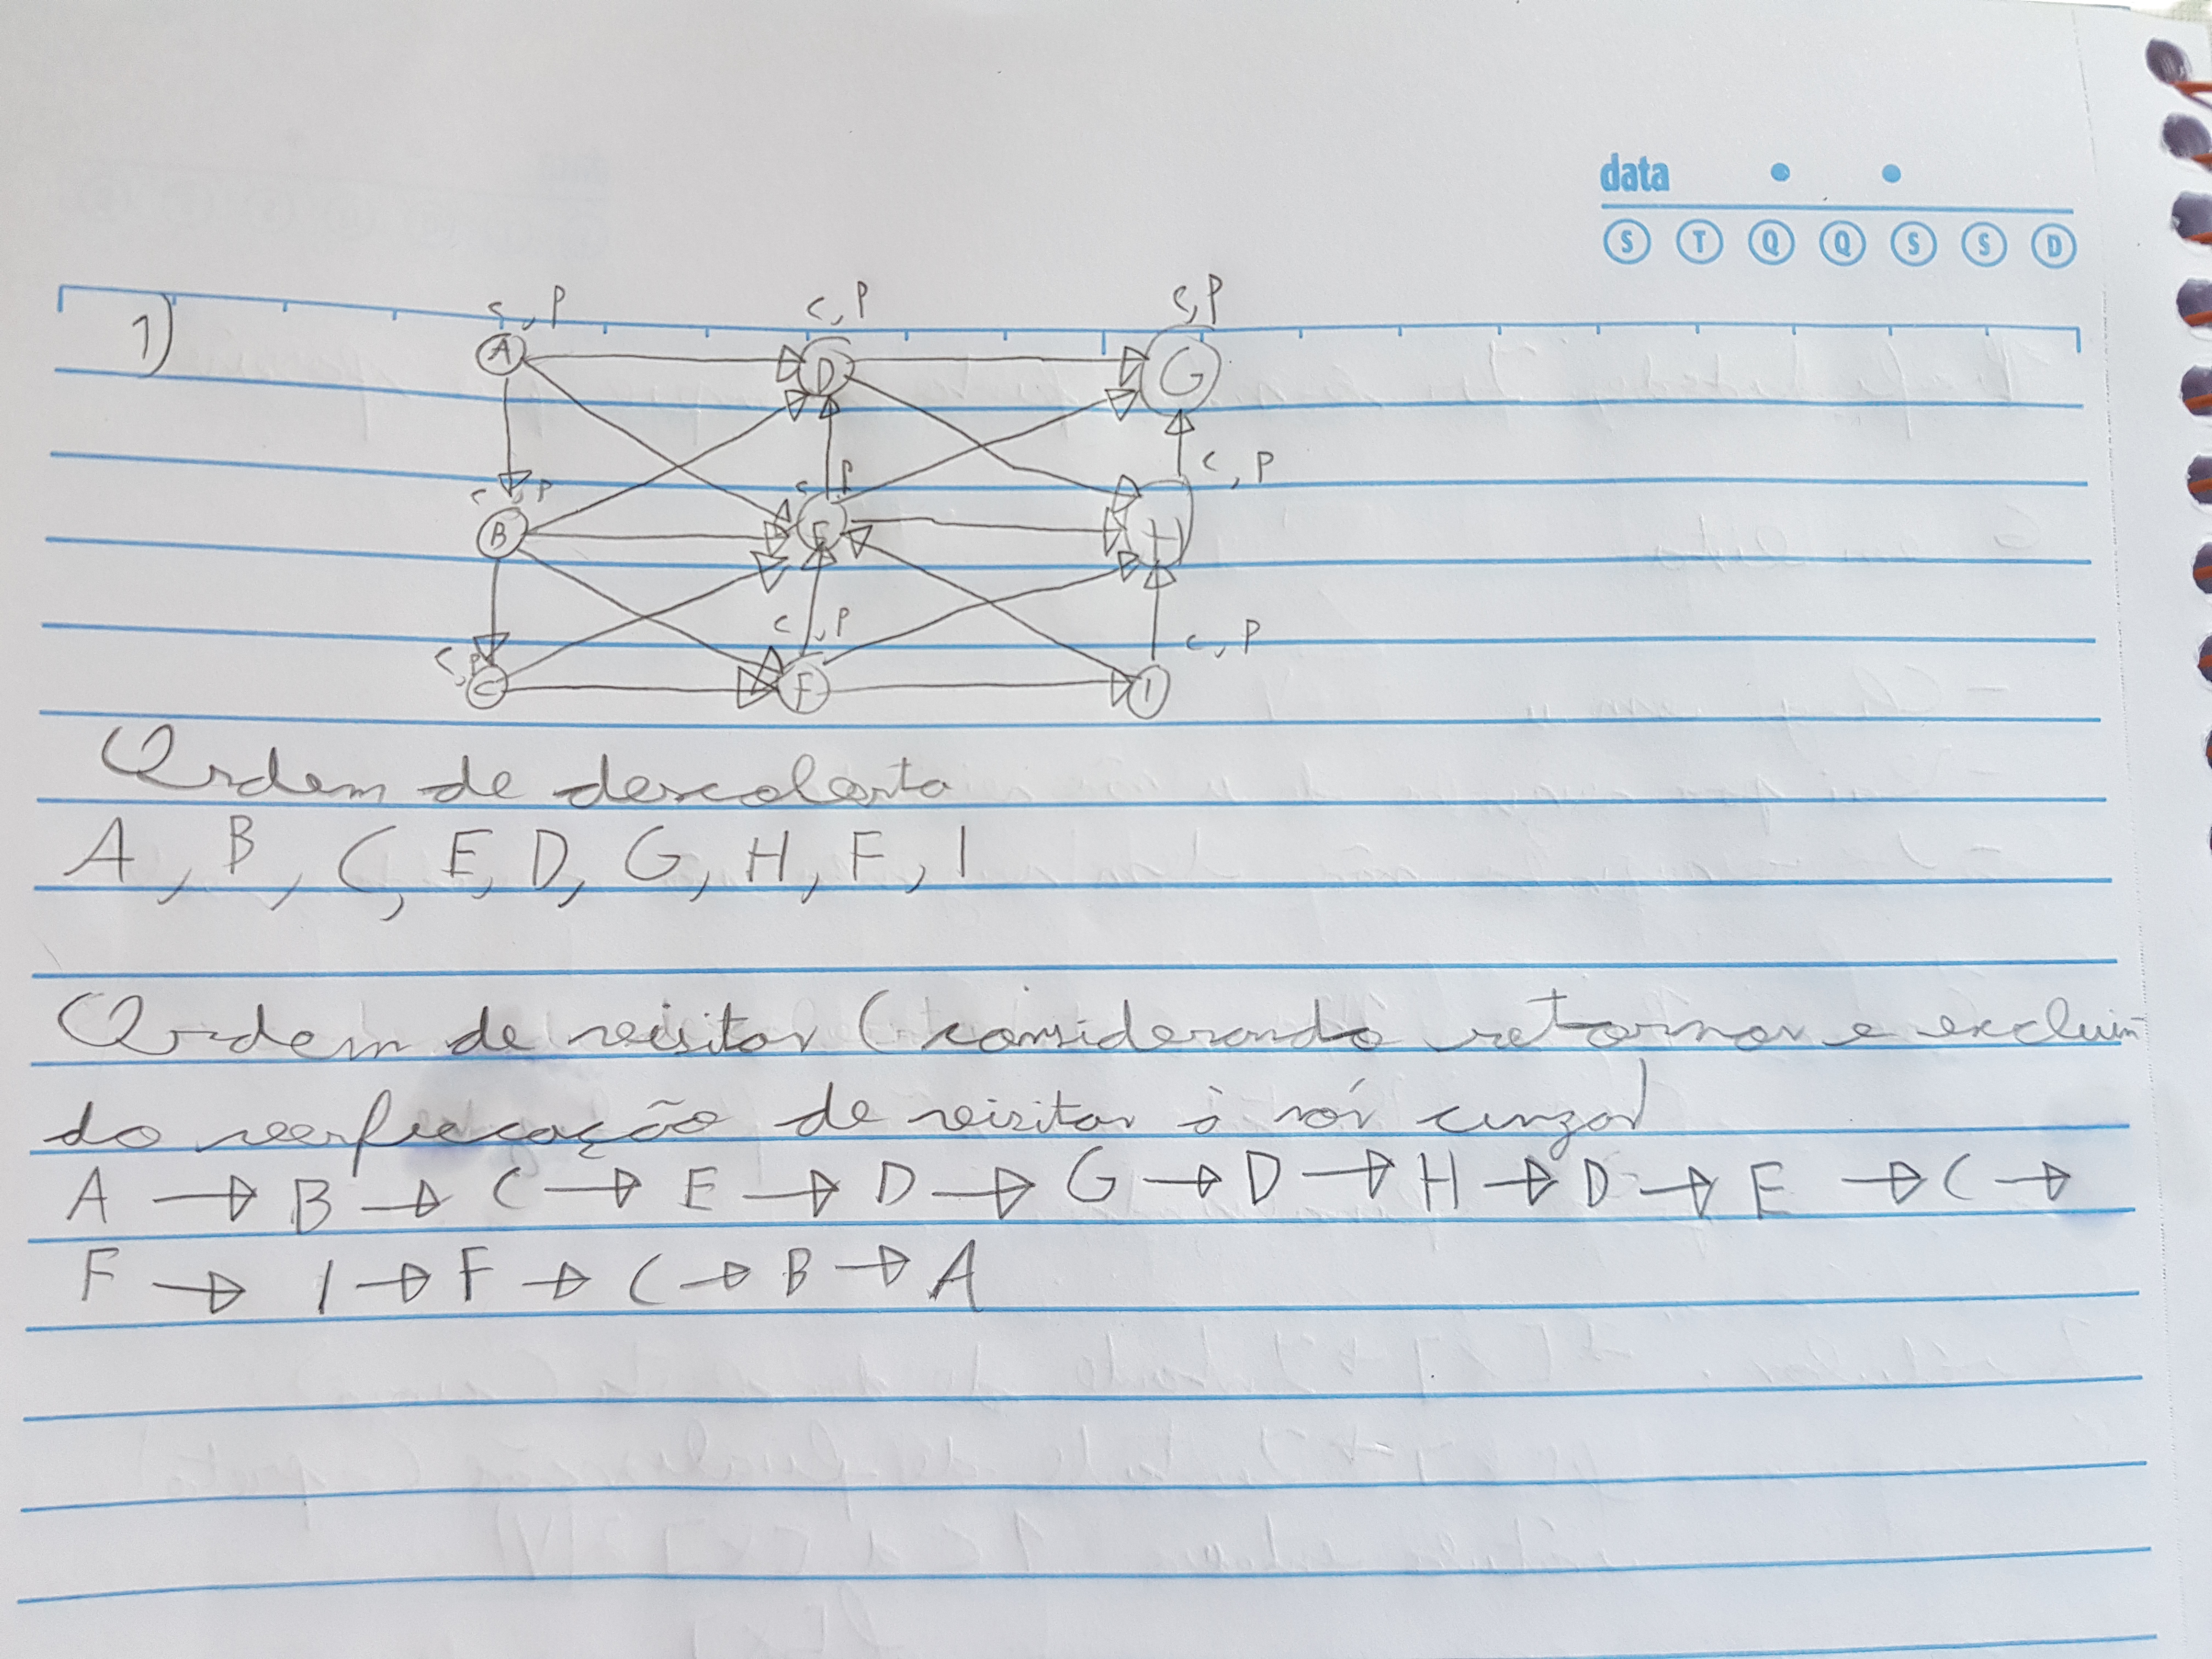 data
S T Q Q S S D
1)
C, P C, P C, P
A D G
C, P C, P C, P
B E H
C, P C, P C, P
C F I
Ordem de descoberta
A, B, C, E, D, G, H, F, I
Ordem de visitas (considerando retornos e excluin
do verificação de visitas à nós cinzas)
A → B → C → E → D → G → D → H → D → E → C →
F → I → F → C → B → A